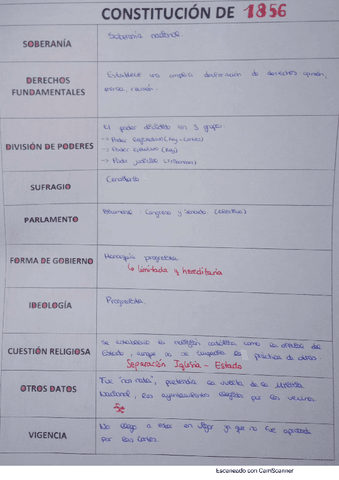 CONSTITUCIÓN DE 1856
SOBERANÍA
Soberanía nacional
DERECHOS FUNDAMENTALES
Establece una amplia declaración de derechos opinión,
reunión
DIVISIÓN DE PODERES
El poder dividido en 3 grupos
→ Poder legislativo (Rey - Cortes)
→ Poder ejecutivo (Rey)
→ Poder judicial (Tribunales)
SUFRAGIO
Censitario
PARLAMENTO
Bicameral: Congreso y Senado. (electivo)
FORMA DE GOBIERNO
Monarquía progresista
↳ limitada y hereditaria
IDEOLOGÍA
Progresista.
CUESTIÓN RELIGIOSA
Se establece la religión católica como la oficial del
Estado, aunque ya se la práctica de otras
Separación Iglesia - Estado
OTROS DATOS
Fue "non nata", pretendía la vuelta de la Milicia
Nacional, los ayuntamientos elegidos por los vecinos
VIGENCIA
No llegó a estar en vigor ya que no fue aprobada
por las Cortes.
Escaneado con CamScanner